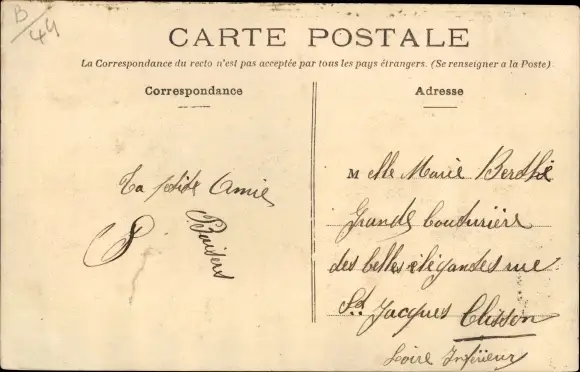 B/44
CARTE POSTALE
La Correspondance du recto n'est pas acceptée par tous les pays étrangers. (Se renseigner a la Poste)
Correspondance
Ta petite Amie
Baisers
Adresse
Melle Marie Berthe
Grande Couturière
des belles élégantes rue
St Jacques Clisson
Loire Inférieur